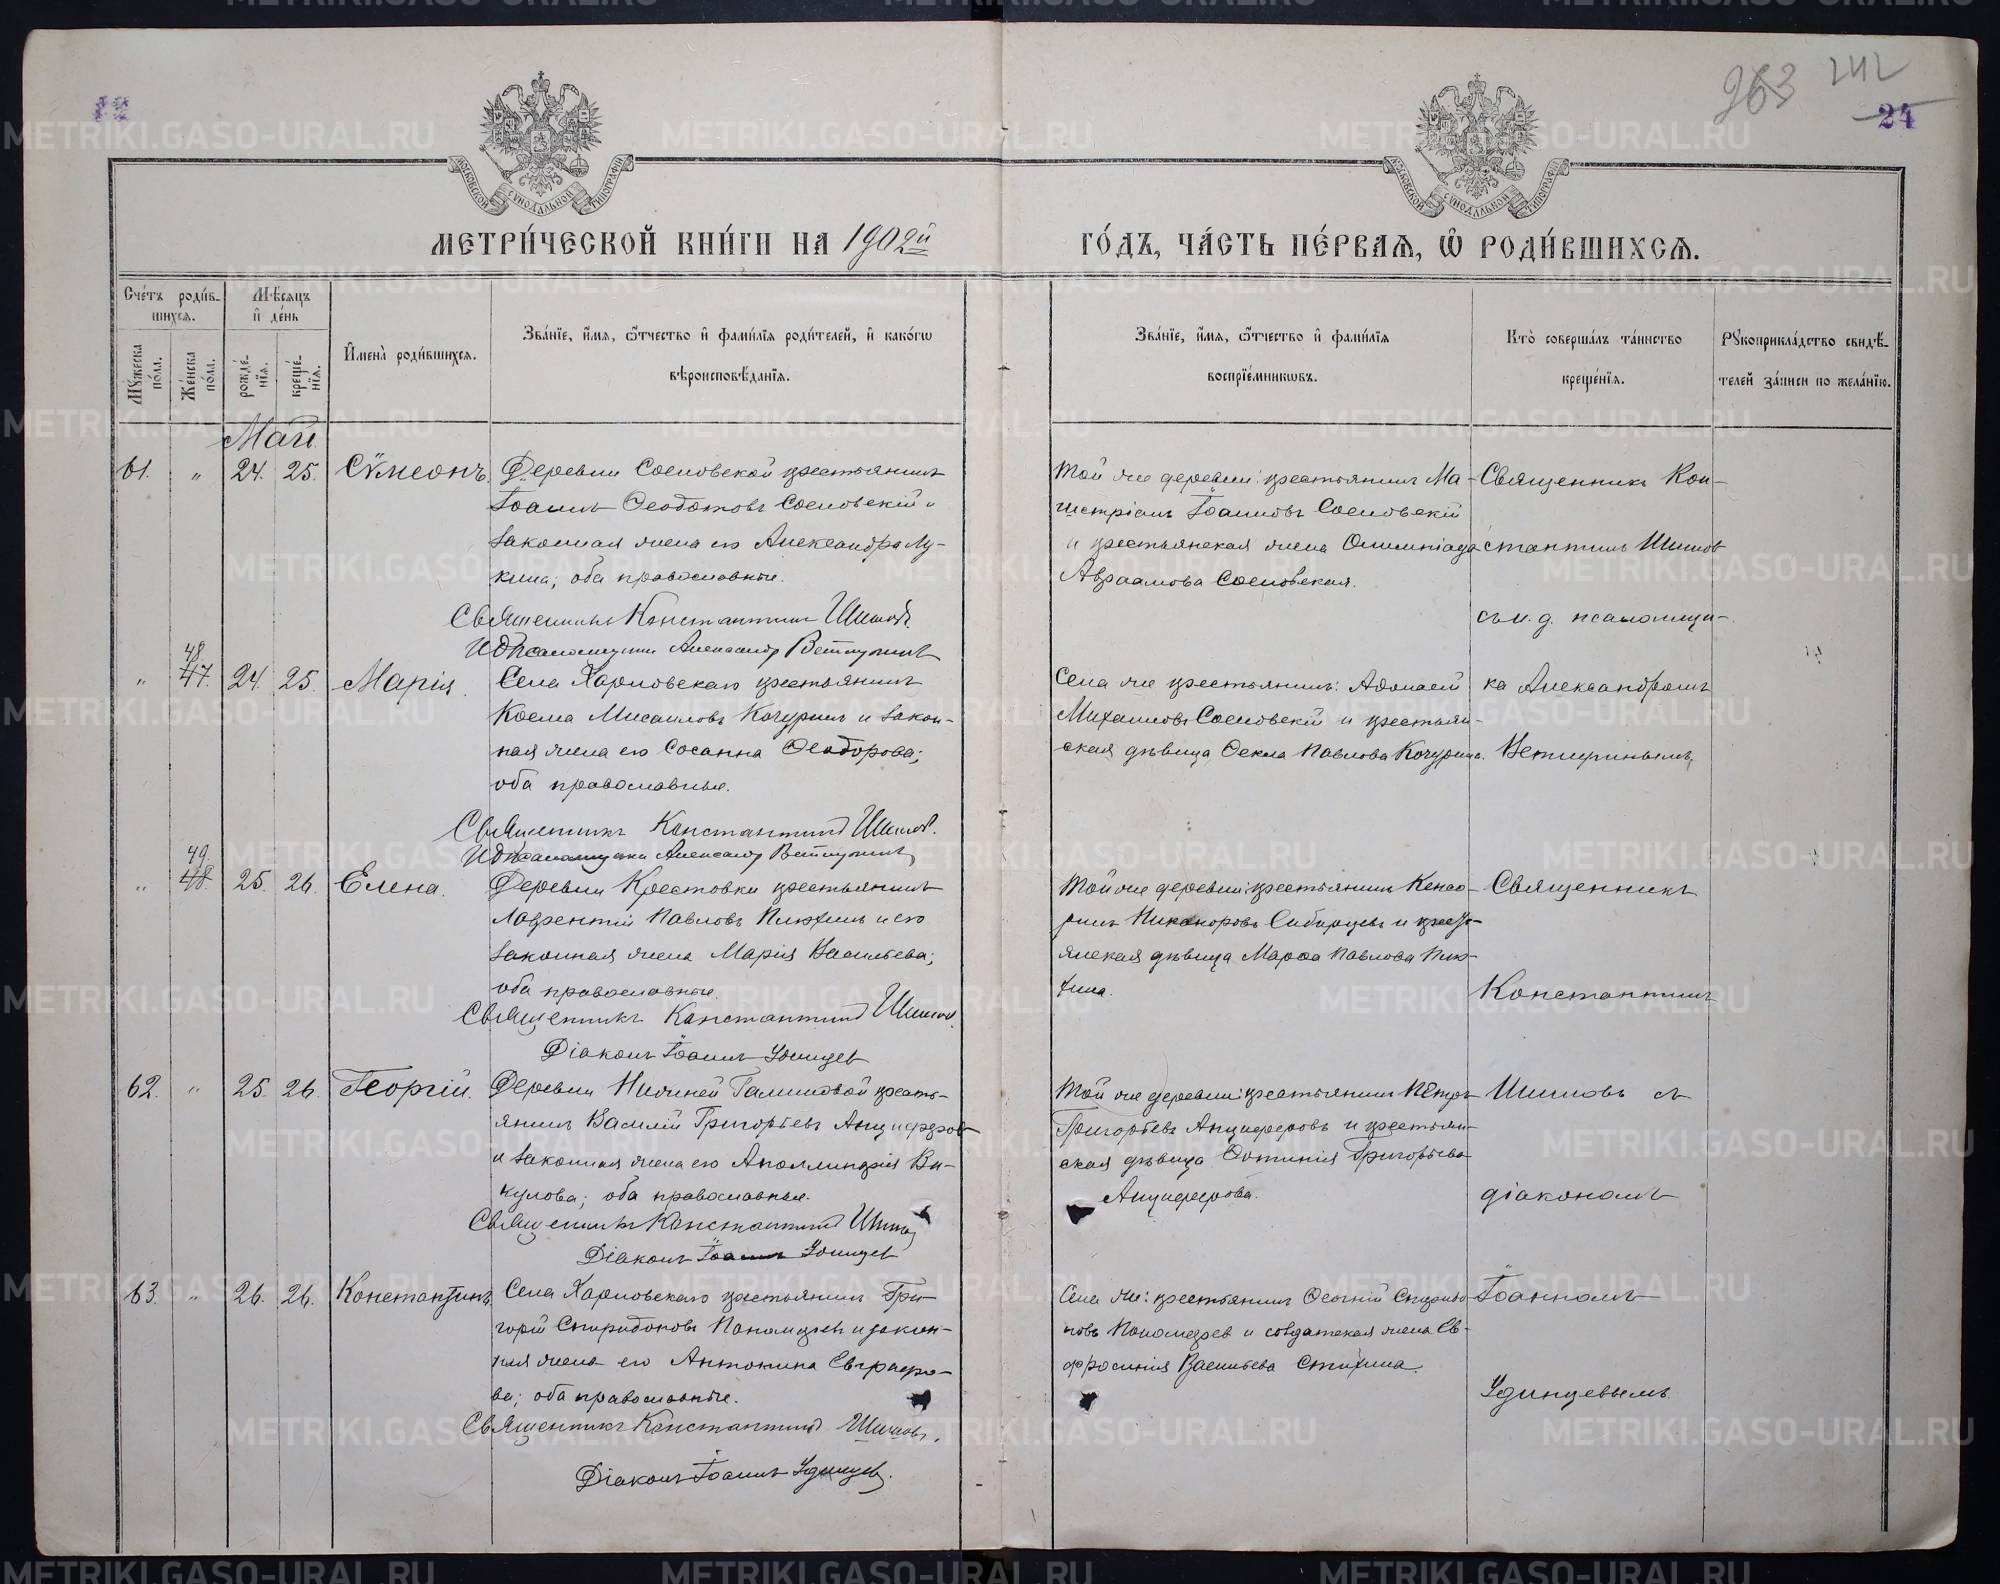 963 242
24
МОСКОВСКОЙ СѴНОДАЛЬНОЙ ТИПОГРАФІИ
МОСКОВСКОЙ СѴНОДАЛЬНОЙ ТИПОГРАФІИ
МЕТРИ́ЧЕСКОЙ КНИ́ГИ НА 1902й
ГО́ДЪ, ЧА́СТЬ ПЕ́РВАѦ, Ѡ҆ РОДИ́ВШИХСѦ.
Сче́тъ роди́в-
шихсѧ.
Мꙋ́жеска по́ла.
Же́нска по́ла.
Мѣ́сѧцъ и҆ де́нь
рожде́-нїѧ.
креще́-нїѧ.
И҆мена̀ роди́вшихсѧ.
Зва́нїе, и҆́мѧ, ѻ҆́тчество и҆ фами́лїѧ роди́телей, и҆ како́гѡ
вѣроисповѣ́данїѧ.
Зва́нїе, и҆́мѧ, ѻ҆́тчество и҆ фами́лїѧ
воспрїе́мникѡвъ.
Кто̀ соверша́лъ та́инство
креще́нїѧ.
Рꙋкоприкла́дство свидѣ́-
телей за́писи по жела́нїю.
Май.
61. " 24. 25. Сѵмеонъ.
Деревни Сосновской крестьянинъ
Іоаннъ Ѳеодотовъ Сосновскій и
законная жена его Александра Лу-
кина; оба православные.
Священникъ Константинъ Шишовъ.
И д Псаломщика Александр
Той же деревни: крестьянинъ
Іоанновъ Сосновскій
и крестьянская жена Олимпіада
Авраамова Сосновская.
Священникъ Кон-
стантинъ Шишов
съ и. д. псаломщи-
ка Александромъ
48.
" 47. 24. 25. Марія.
Села Харловскаго крестьянинъ
Косма Мисаиловъ Кочуринъ и закон-
ная жена его Сосанна Ѳеодорова;
оба православные.
Священникъ Константинъ Шишов.
И д Псаломщика Александр
Села же крестьянинъ:
Михаиловъ Сосновскій и крестьян-
ская дѣвица Ѳекла Павлова
49.
" 48. 25. 26. Елена.
Деревни Крестовки крестьянинъ
Лаврентій Павловъ и его
законная жена Марія Васильева;
оба православные.
Священникъ Константинъ Шишов.
Діаконъ Іоаннъ Удинцев
Той же деревни: крестьянинъ
Никаноровъ Сибирцевъ и крестья-
янская дѣвица Марѳа Павлова
Священникъ
Константинъ
62. " 25. 26. Георгій.
Деревни Нижней крестья-
янинъ Василій Григорьевъ Анциферов
и законная жена его Аполлинарія Ви-
кулова; оба православные.
Священникъ Константинъ Шишов
Діаконъ Іоаннъ Удинцев
Той же деревни: крестьянинъ Петръ
Григорьевъ Анциферовъ и крестьян-
ская дѣвица Фотинія Григорьева
Анциферова.
Шишовъ съ
діакономъ
63. " 26. 26. Константинъ.
Села Харловскаго крестьянинъ Гри-
горій Спиридоновъ Пономарев и закон-
ная жена его Антонина Евграфо-
ва; оба православные.
Священникъ Константинъ Шишовъ.
Діаконъ Іоаннъ Удинцев.
Села же: крестьянинъ Спиридо-
новъ Пономарев и солдатская жена Ев-
фросинія Васильева
Іоанномъ
Удинцевымъ.